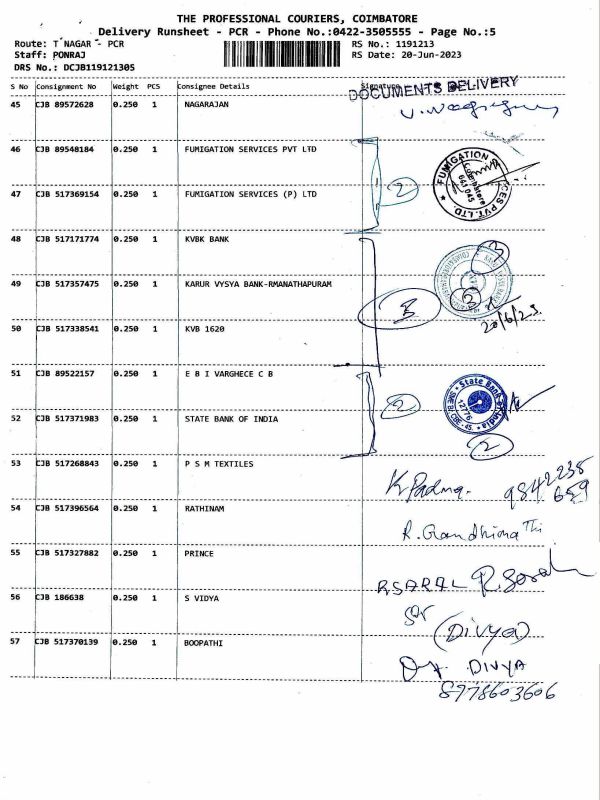 THE PROFESSIONAL COURIERS, COIMBATORE
Delivery Runsheet - PCR - Phone No.:0422-3505555 - Page No.:5
Route: T NAGAR - PCR RS No.: 1191213
Staff: PONRAJ RS Date: 20-Jun-2023
DRS No.: DCJB1191213O5
S No Consignment No Weight PCS Consignee Details Signature
DOCUMENTS DELIVERY
45 CJB 89572628 0.250 1 NAGARAJAN
46 CJB 89548184 0.250 1 FUMIGATION SERVICES PVT LTD
47 CJB 517369154 0.250 1 FUMIGATION SERVICES (P) LTD 2
48 CJB 517171774 0.250 1 KVBK BANK 3
49 CJB 517357475 0.250 1 KARUR VYSYA BANK-RMANATHAPURAM 3
20/6/23
50 CJB 517338541 0.250 1 KVB 1620
51 CJB 89522157 0.250 1 E B I VARGHECE C B
State Bank of India
2
52 CJB 517371983 0.250 1 STATE BANK OF INDIA 2
53 CJB 517268843 0.250 1 P S M TEXTILES K Padma. 9842238
659
54 CJB 517396564 0.250 1 RATHINAM R. Gandhimathi
55 CJB 517327882 0.250 1 PRINCE
56 CJB 186638 0.250 1 S VIDYA
(DIVYA)
57 CJB 517370139 0.250 1 BOOPATHI
DIVYA
8778603606